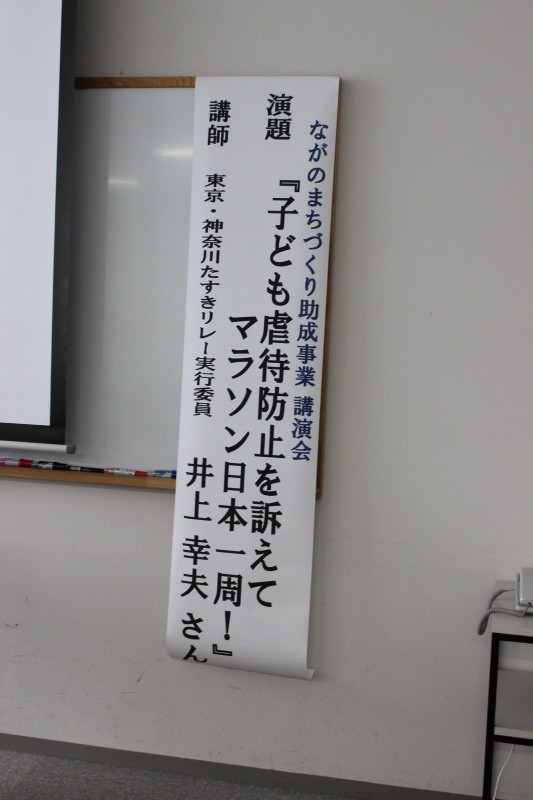 ながのまちづくり助成事業 講演会
演題 『子ども虐待防止を訴えて
マラソン日本一周！』
講師 東京・神奈川たすきリレー実行委員
井上 幸夫 さん